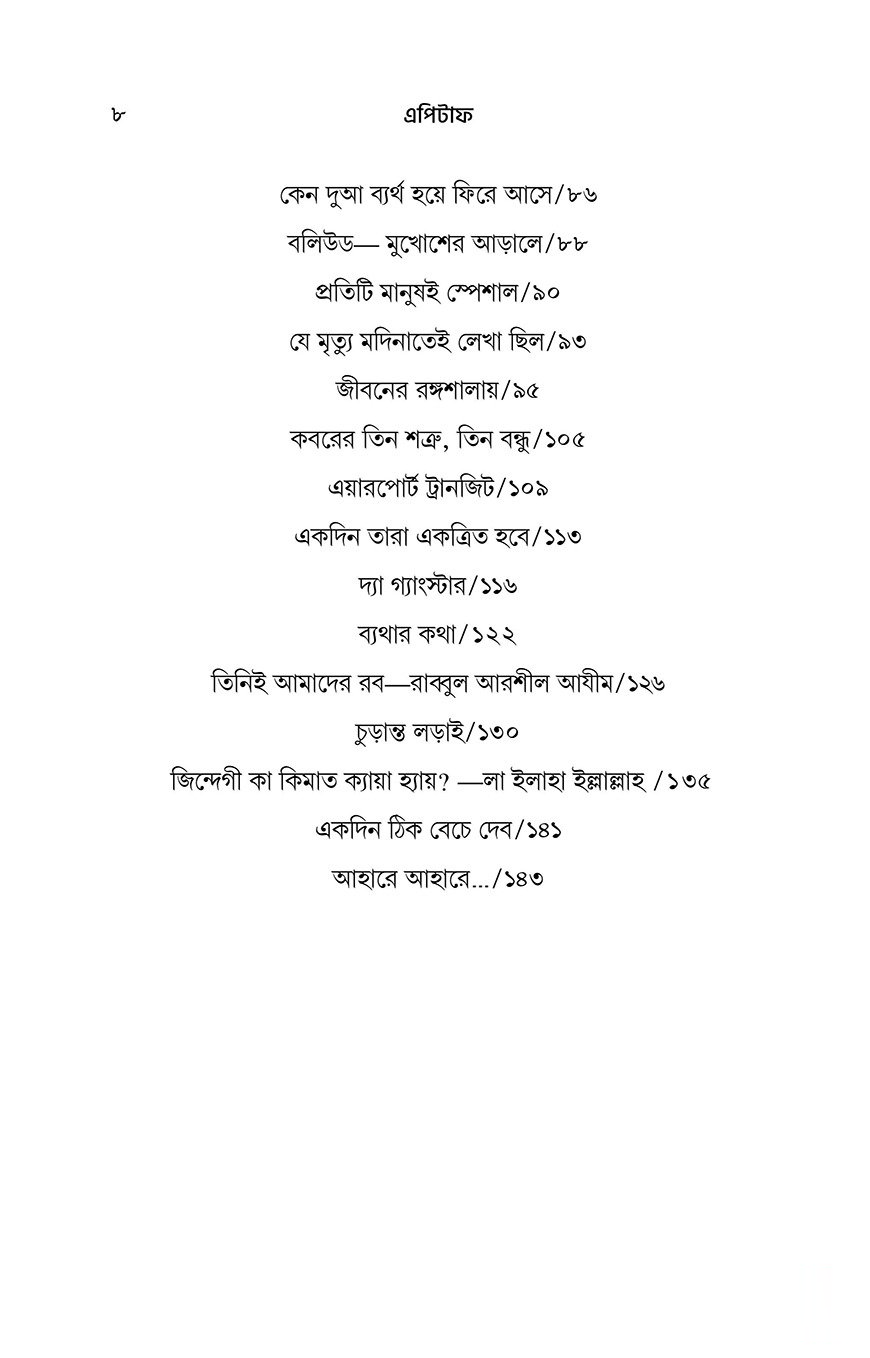 ৮ এপিটাফ
কেন দুআ ব্যর্থ হয়ে ফিরে আসে/৮৬
বলিউড— মুখোশের আড়ালে/৮৮
প্রতিটি মানুষই স্পেশাল/৯০
যে মৃত্যু মদিনাতেই লেখা ছিল/৯৩
জীবনের রঙ্গশালায়/৯৫
কবরের তিন শত্রু, তিন বন্ধু/১০৫
এয়ারপোর্ট ট্রানজিট/১০৯
একদিন তারা একত্রিত হবে/১১৩
দ্যা গ্যাংস্টার/১১৬
ব্যথার কথা/১২২
তিনিই আমাদের রব—রাব্বুল আরশীল আযীম/১২৬
চুড়ান্ত লড়াই/১৩০
জিন্দেগী কা কিমাত ক্যায়া হ্যায়? —লা ইলাহা ইল্লাল্লাহ /১৩৫
একদিন ঠিক বেচে দেব/১৪১
আহারে আহারে.../১৪৩